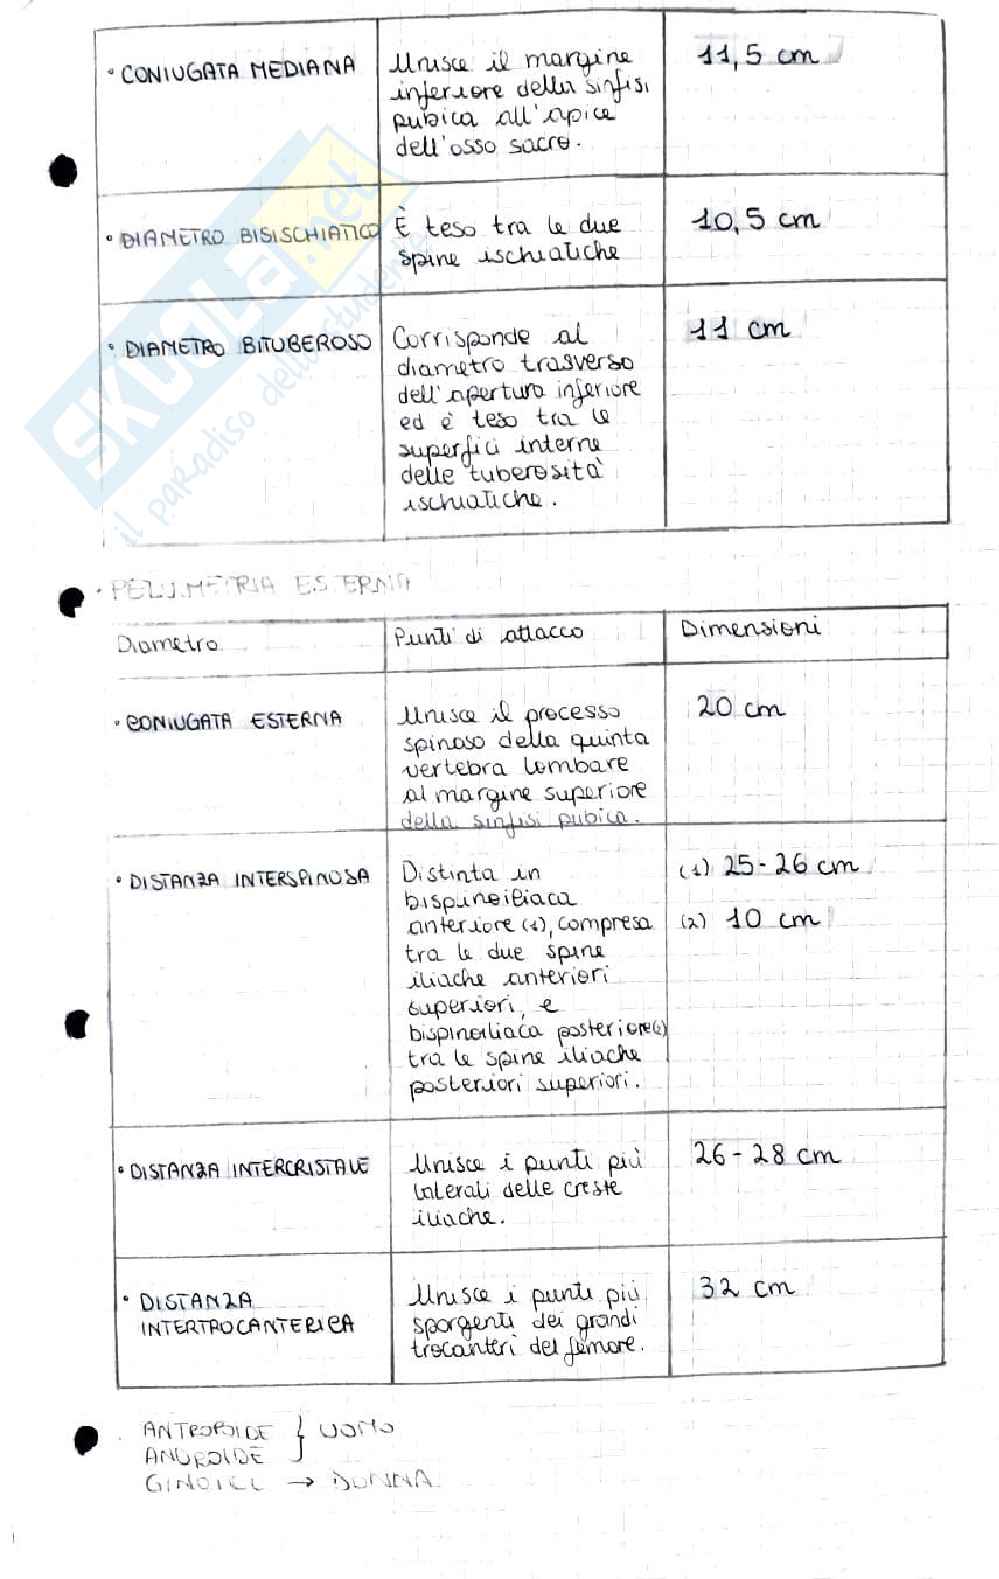 · CONIUGATA MEDIANA
Unisce il margine
inferiore della sinfisi
pubica all'apice
dell'osso sacro.
11,5 cm
· DIAMETRO BISISCHIATICO
È teso tra le due
spine ischiatiche
10,5 cm
· DIAMETRO BITUBEROSO
Corrisponde al
diametro trasverso
dell'apertura inferiore
ed è teso tra le
superfici interne
delle tuberosità
ischiatiche.
11 cm
SKUOLA.net
il paradiso dello studente
· PELVIMETRIA ESTERNA
Diametro
Punti di attacco
Dimensioni
· CONIUGATA ESTERNA
Unisce il processo
spinoso della quinta
vertebra lombare
al margine superiore
della sinfisi pubica.
20 cm
· DISTANZA INTERSPINOSA
Distinta in
bispinoiliaca
anteriore (1), compresa
tra le due spine
iliache anteriori
superiori, e
bispinoiliaca posteriore(2)
tra le spine iliache
posteriori superiori.
(1) 25-26 cm
(2) 10 cm
· DISTANZA INTERCRISTALE
Unisce i punti più
laterali delle creste
iliache.
26-28 cm
· DISTANZA
INTERTROCANTERICA
Unisce i punti più
sporgenti dei grandi
trocanteri del femore.
32 cm
· ANTROPOIDE } UOMO
ANDROIDE
→ DONNA